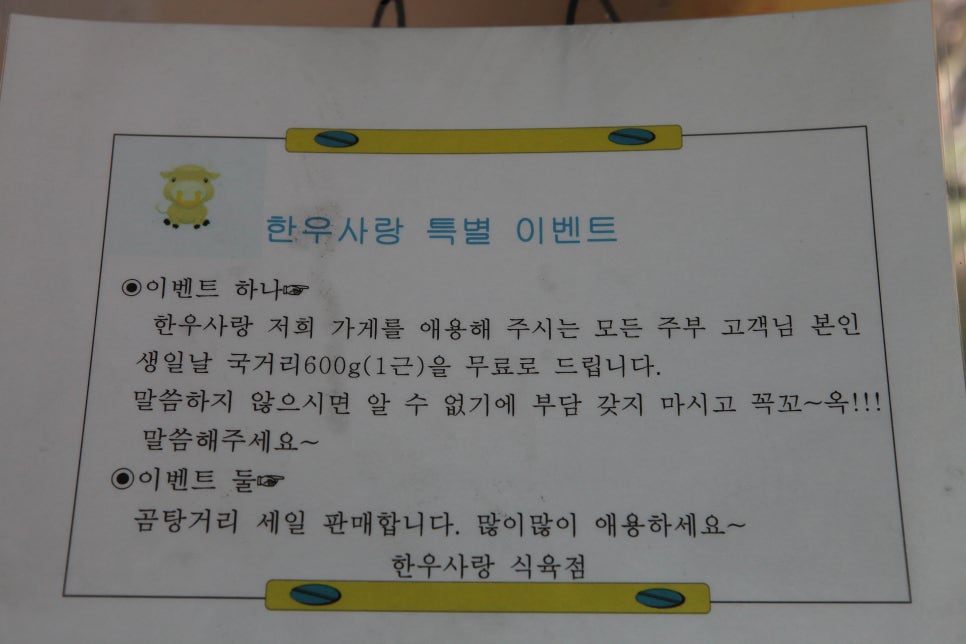 한우사랑 특별 이벤트
◉이벤트 하나☞
한우사랑 저희 가게를 애용해 주시는 모든 주부 고객님 본인
생일날 국거리600g(1근)을 무료로 드립니다.
말씀하지 않으시면 알 수 없기에 부담 갖지 마시고 꼭꼬~옥!!!
말씀해주세요~
◉이벤트 둘☞
곰탕거리 세일 판매합니다. 많이많이 애용하세요~
한우사랑 식육점